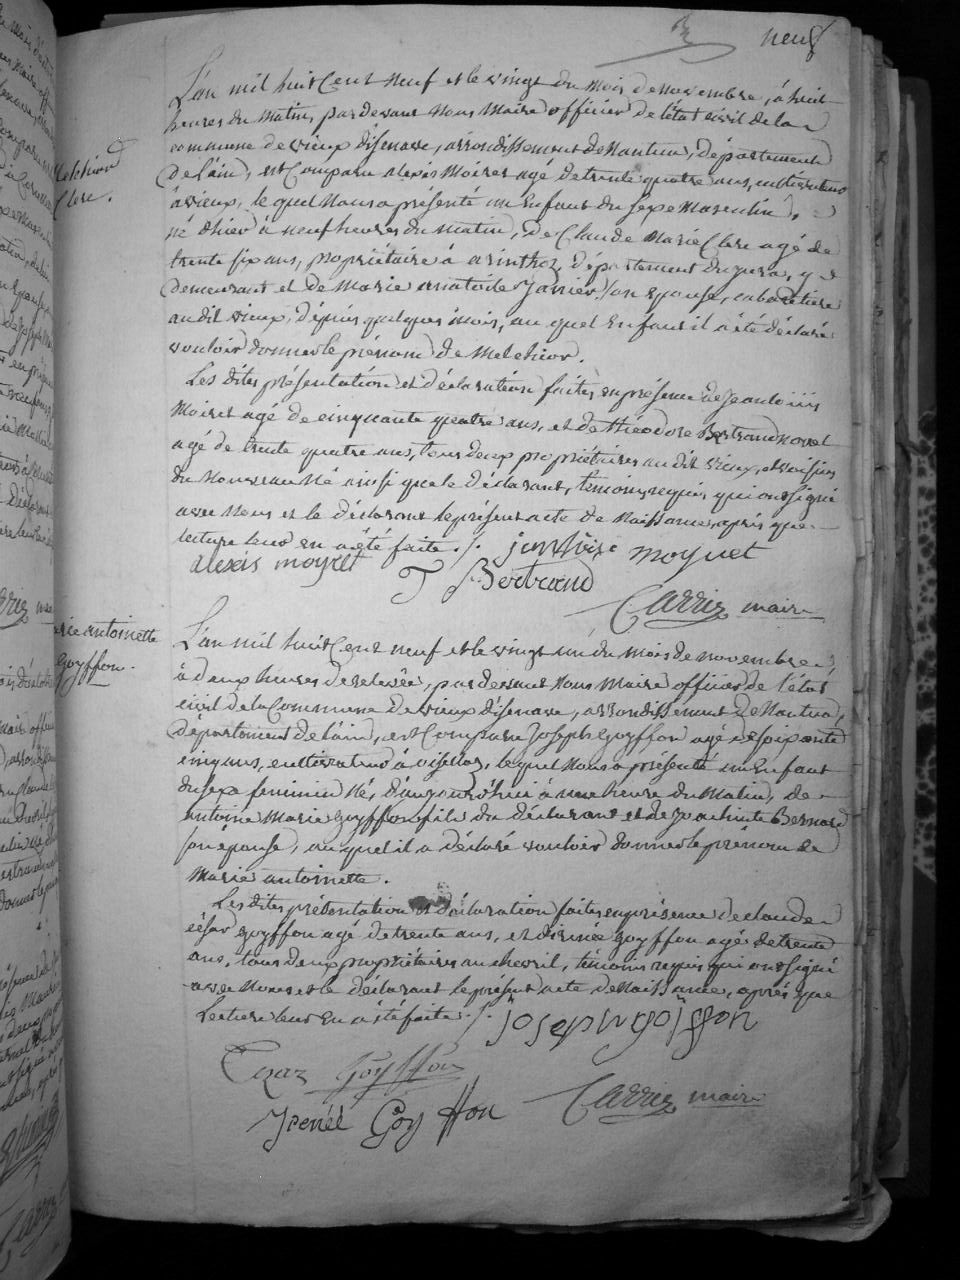 neuf
L'an mil huit Cent neuf et le vingt du mois de novembre, à huit
heures du matin, pardevant nous Maire officier de l'état civil de la
commune de vieux d'isenave, arrondissement de Nantua, département
Melchiond
de l'ain, est Comparu alexis Moiret agé de trente quatre ans, cultivateur
Clerc.
à vieux, le quel Nous a présenté un Enfant du sexe Masculin,
né d'hier à neuf heures du matin, de Claude Marie Clerc agé de
trente six ans, propriétaire à arinthoz, département du jura, y
demeurant et de Marie anatoile Janvier son épouse, cabaretière
audit vieux, dépuis quelques mois, au quel Enfant il a été déclaré
vouloir donner le prénom de Melchior.
Les dites présentation et déclaration faites en présence de jeanlouis
Moiret agé de cinquante quatre ans, et de théodore Bertrand
agé de trente quatre ans, tous deux propriétaires audit vieux, et voisins
du Nouveau Né ainsi que le déclarant, témoins requis qui ont signé
avec Nous et le déclarant le présent acte de Naissance, après que
lecture leur en a été faite ./. moyret
alexis moyret
T Bertrand
Carrier maire
marie antoinette
L'an mil huit Cent neuf et le vingt un du mois de novembre
Goyffon.
à deux heures de relevée, pardevant Nous Maire officier de l'état
civil de la Commune de vieux d'isenave, arrondissement de Nantua,
département de l'ain, est Comparu Joseph Goyffon agé de soixante
cinq ans, cultivateur à le quel Nous a présenté un Enfant
du sexe feminin Né, d'aujourd'hui à une heure du Matin, de
antoine Marie Goyffon fils du déclarant et de Bernard
son épouse, auquel il a déclaré vouloir donner le prénom de
Marie antoinette.
Les dites présentation et déclaration faites en présence de claude
César Goyffon agé de trente ans, et d'irénée Goyffon agé de trente
ans, tous deux propriétaires au chevril, témoins requis qui ont signé
avec Nous et le déclarant le présent acte de Naissance, après que
Lecture leur en a été faite ./. joseph goiffon
Cezar Goyffon
Carrier maire
Irenée Goyffon